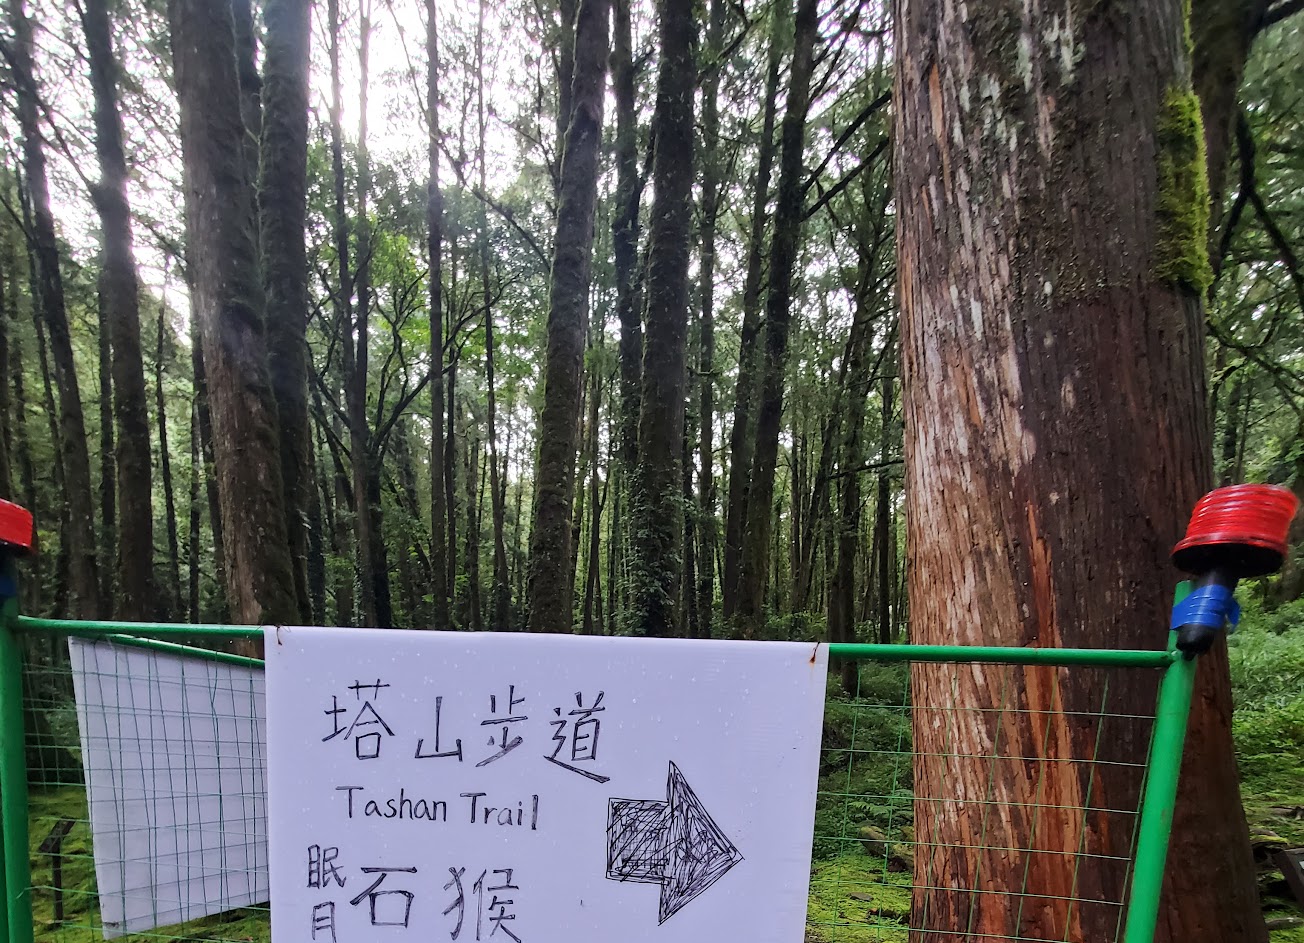 塔山步道
Tashan Trail
眠月石猴